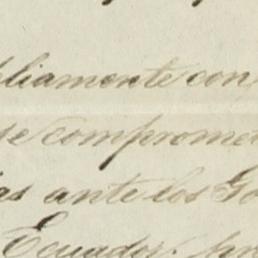 pliamente con
se compromet
as ante los Go
Ecuador.